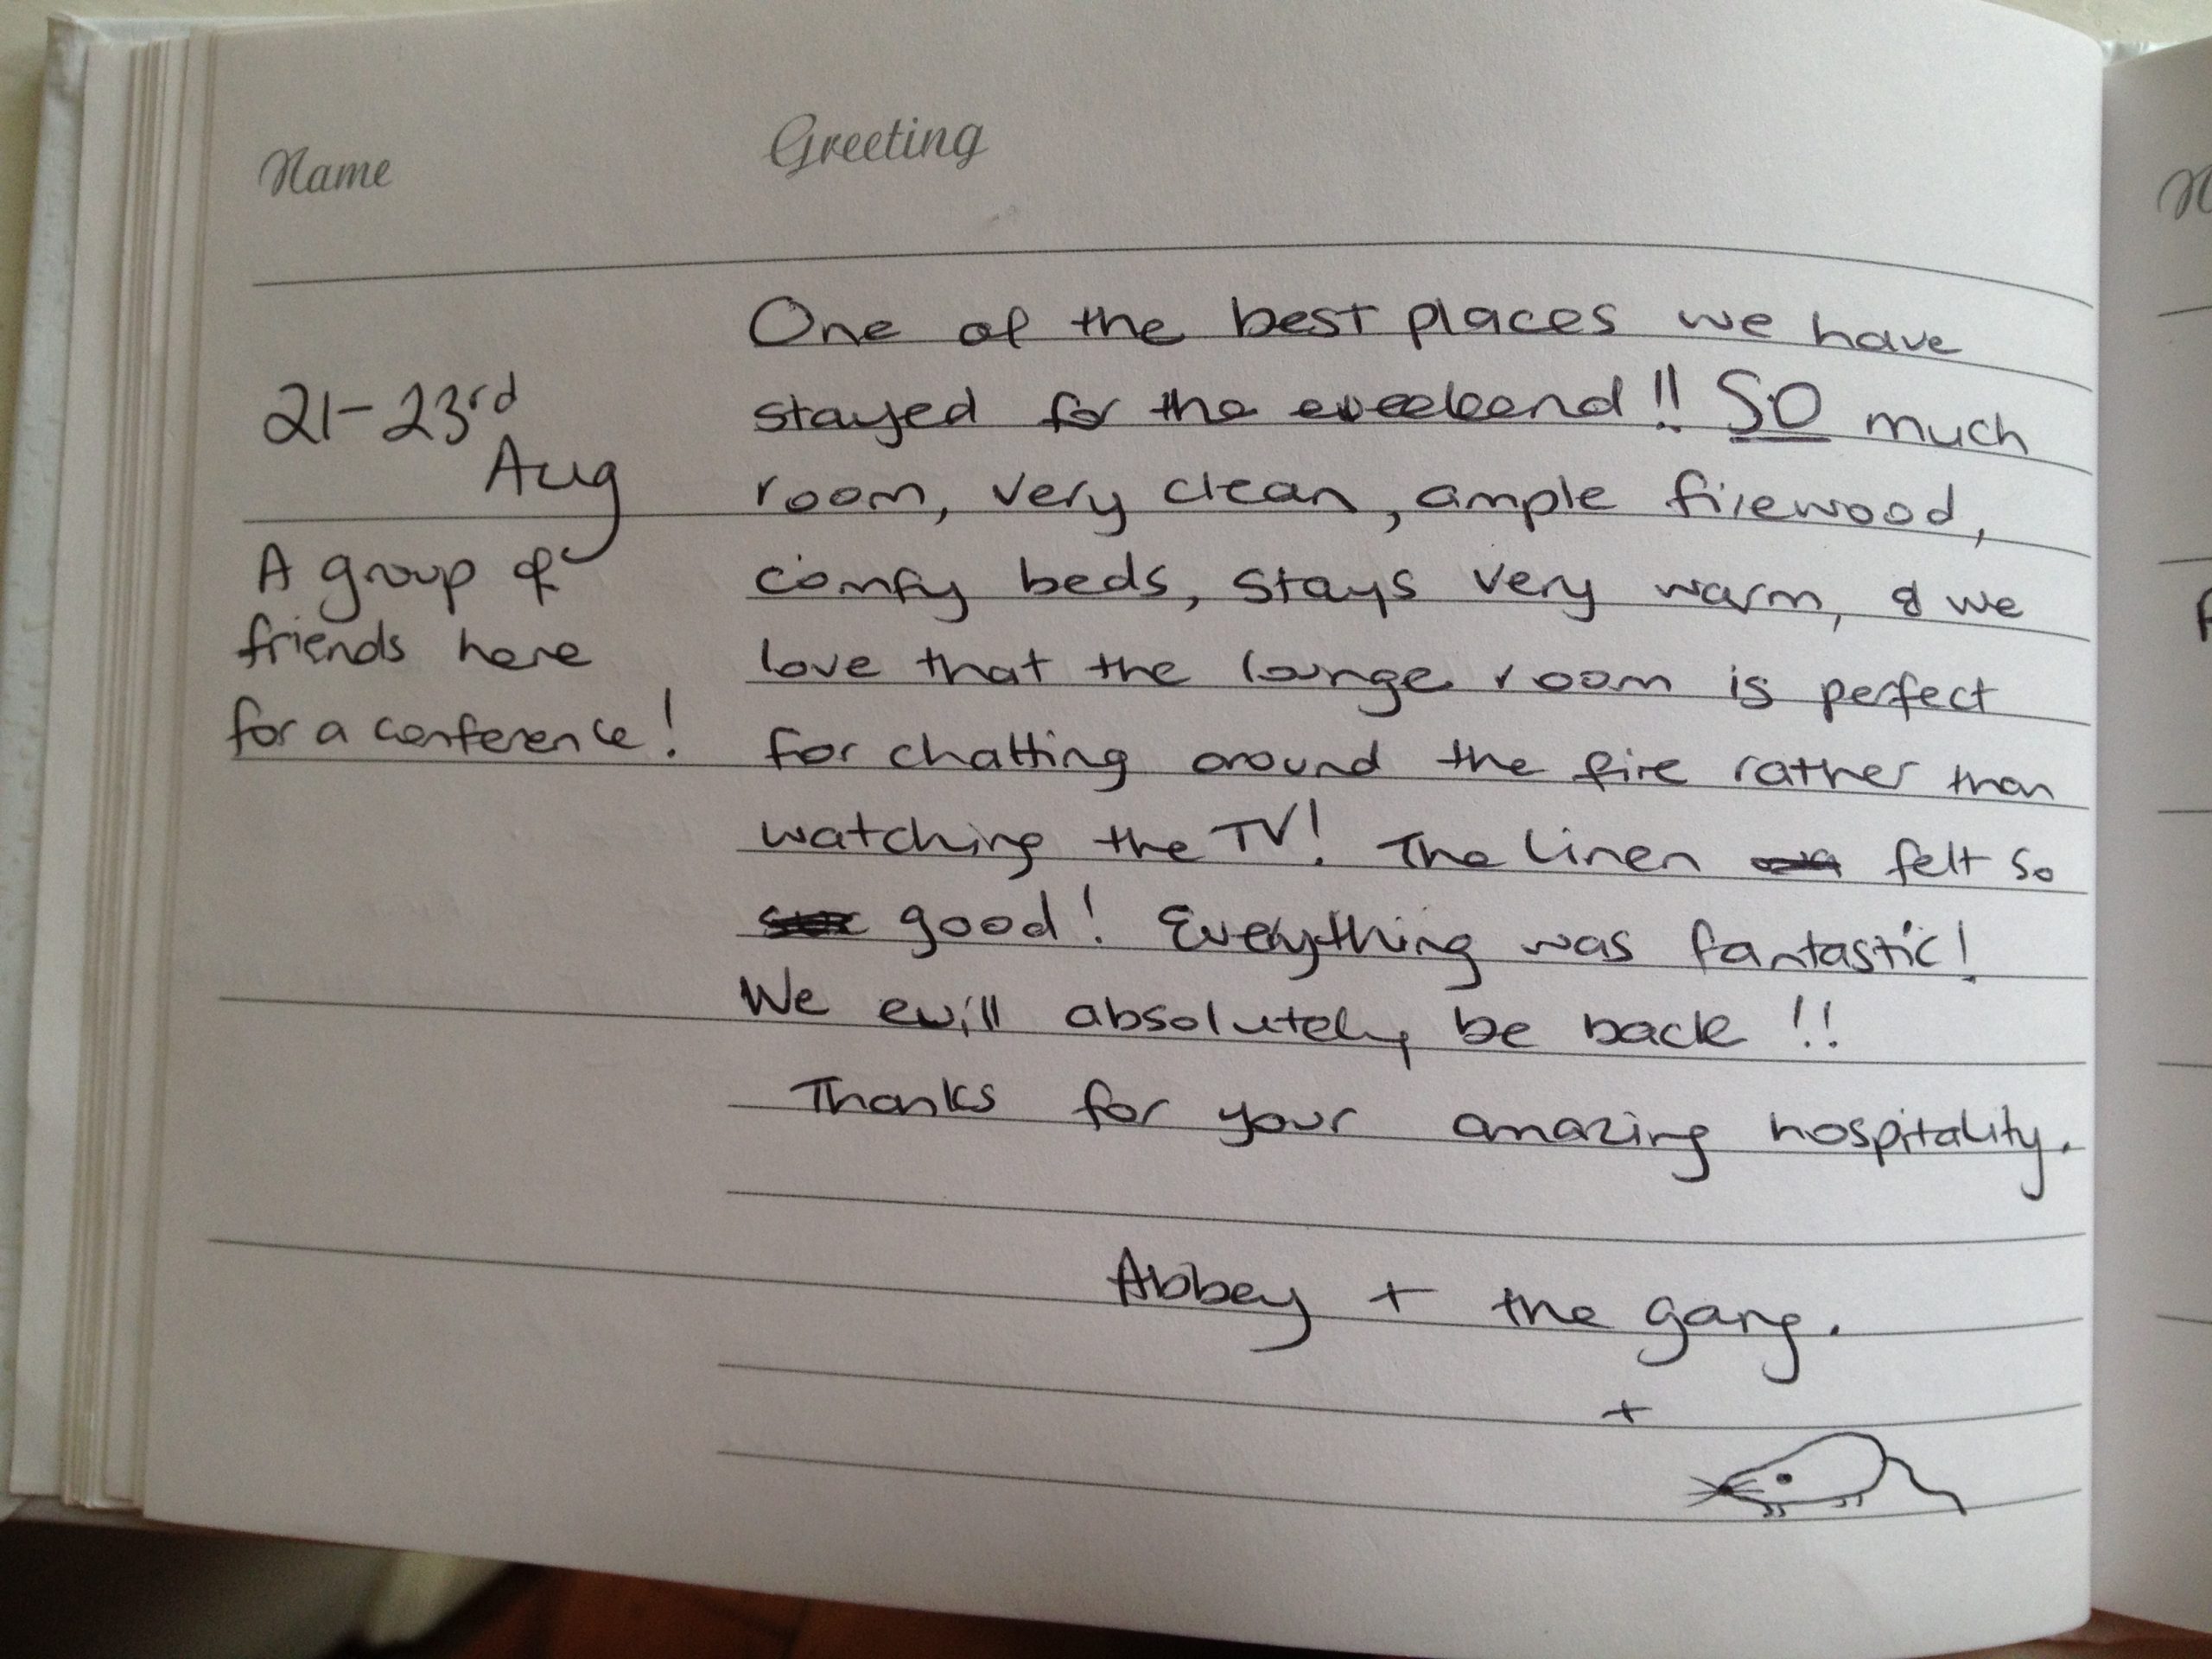 Name
Greeting
21-23rd
Aug
A group of
friends here
for a conference!
One of the best places we have
stayed for the weekend!! SO much
room, very clean, ample firewood,
comfy beds, stays very warm, & we
love that the lounge room is perfect
for chatting around the fire rather than
watching the TV! The linen felt so
good! Everything was fantastic!
We will absolutely be back !!
Thanks for your amazing hospitality.
Abbey + the gang.
+